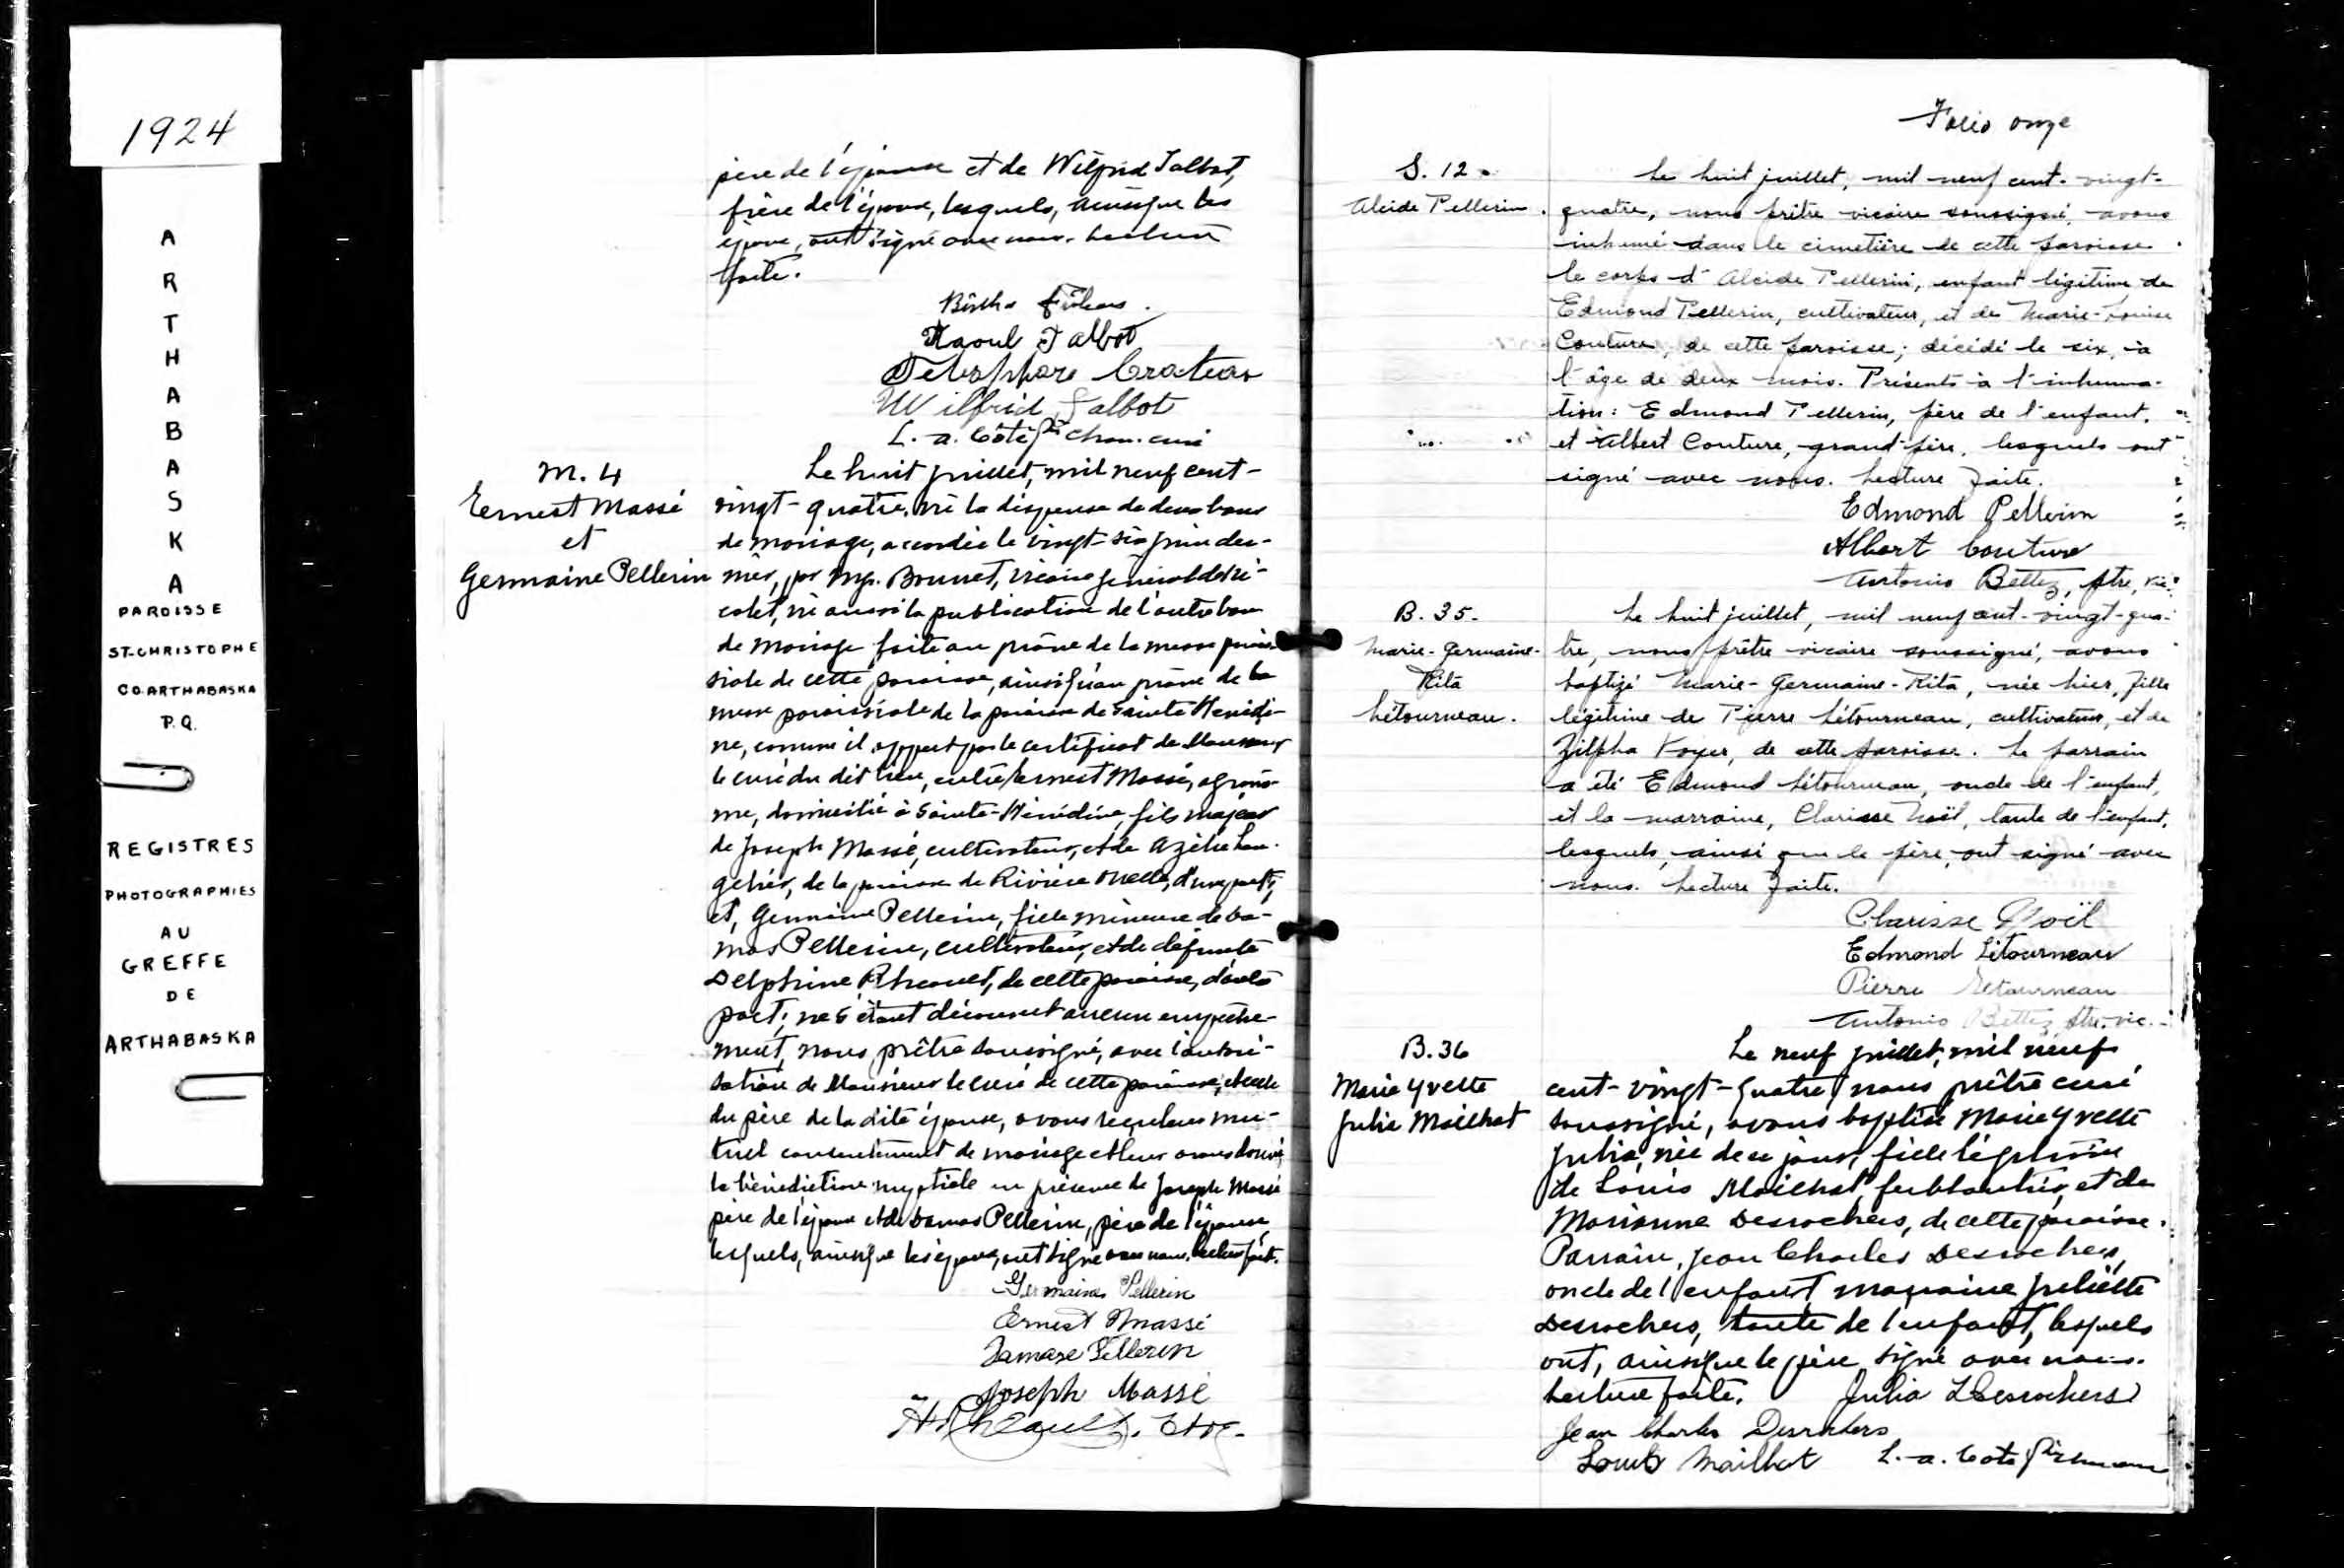 1924
A
R
T
H
A
B
A
S
K
A
PAROISSE
ST-CHRISTOPHE
CO. ARTHABASKA
P.Q.
REGISTRES
PHOTOGRAPHIES
AU
GREFFE
DE
ARTHABASKA
père de l'épouse et de Wilfrid Talbot,
frère de l'époux, lesquels, ainsi que les
époux, ont signé avec nous. Lecture
faite.
Raoul Talbot
Télesphore Croteau
Wilfrid Talbot
L.-a. Côté ptre chan. curé
M. 4
Ernest Massé
et
Germaine Pellerin
Le huit juillet, mil neuf cent-
vingt-quatre, vu la dispense de deux bans
de mariage, accordée le vingt-six juin der-
nier, par Mgr. Brunet, vicaire général de Ni-
colet, vu aussi la publication de l'autre ban
de mariage faite au prône de la messe parois-
siale de cette paroisse, ainsi qu'au prône de la
messe paroissiale de la paroisse de Sainte Hénédi-
ne, comme il appert par le certificat de Monsieur
le curé du dit lieu, entre Ernest Massé, agrono-
me, domicilié à Sainte-Hénédine, fils majeur
de Joseph Massé, cultivateur, et de Azélie Lan-
gelier, de la paroisse de Rivière Ouelle, d'une part,
et, Germaine Pellerin, fille mineure de Da-
mas Pellerin, cultivateur, et de défunte
Delphine Rheault, de cette paroisse, d'autre
part; ne s'étant découvert aucun empêche-
ment, nous, prêtre soussigné, avec l'autori-
sation de Monsieur le curé de cette paroisse, et celle
du père de la dite épouse, avons reçu leur mu-
tuel consentement de mariage et leur avons donné
la bénédiction nuptiale en présence de Joseph Massé
père de l'époux et de Damas Pellerin, père de l'épouse,
lesquels, ainsi que les époux, ont signé avec nous. Lecture faite.
Germaine Pellerin
Ernest Massé
Damase Pellerin
Joseph Massé
H. Rheault. Ptre.
Folio onze
S. 12.
Alcide Pellerin.
Le huit juillet, mil neuf cent-vingt-
quatre, nous prêtre vicaire soussigné avons
inhumé dans le cimetière de cette paroisse
le corps d'Alcide Pellerin, enfant légitime de
Edmond Pellerin, cultivateur, et de Marie-Louise
Couture, de cette paroisse; décédé le six, à
l'âge de deux mois. Présents à l'inhuma-
tion: Edmond Pellerin, père de l'enfant,
et Albert Couture, grand-père, lesquels ont
signé avec nous. Lecture faite.
Edmond Pellerin
Albert Couture
Antonio Bettez, ptre, vic.
B. 35.
Marie-Germaine-
Rita
Létourneau.
Le huit juillet, mil neuf cent-vingt-qua-
tre, nous prêtre vicaire soussigné, avons
baptizé Marie-Germaine-Rita, née hier, fille
légitime de Pierre Létourneau, cultivateur, et de
Zilpha Voyer, de cette paroisse. Le parrain
a été Edmond Létourneau, oncle de l'enfant,
et la marraine, Clarisse Noël, tante de l'enfant,
lesquels, ainsi que le père, ont signé avec
nous. Lecture faite.
Clarisse Noël
Edmond Létourneau
Pierre Létourneau
Antonio Bettez, ptre. vic.
B. 36
Marie Yvette
Julia Mailhot
Le neuf juillet, mil neuf
cent-vingt-quatre, nous prêtre curé
soussigné, avons baptisé Marie Yvette
Julia, née de ce jour, fille légitime
de Louis Mailhot, ferblantier, et de
Marianne Desrochers, de cette paroisse.
Parrain, Jean Charles Desrochers,
oncle de l'enfant, marraine Juliette
Desrochers, tante de l'enfant, lesquels
ont, ainsi que le père signé avec nous.
Lecture faite. Julia Desrochers
Jean Charles Desrochers
Louis Mailhot L.-a. Coté ptre